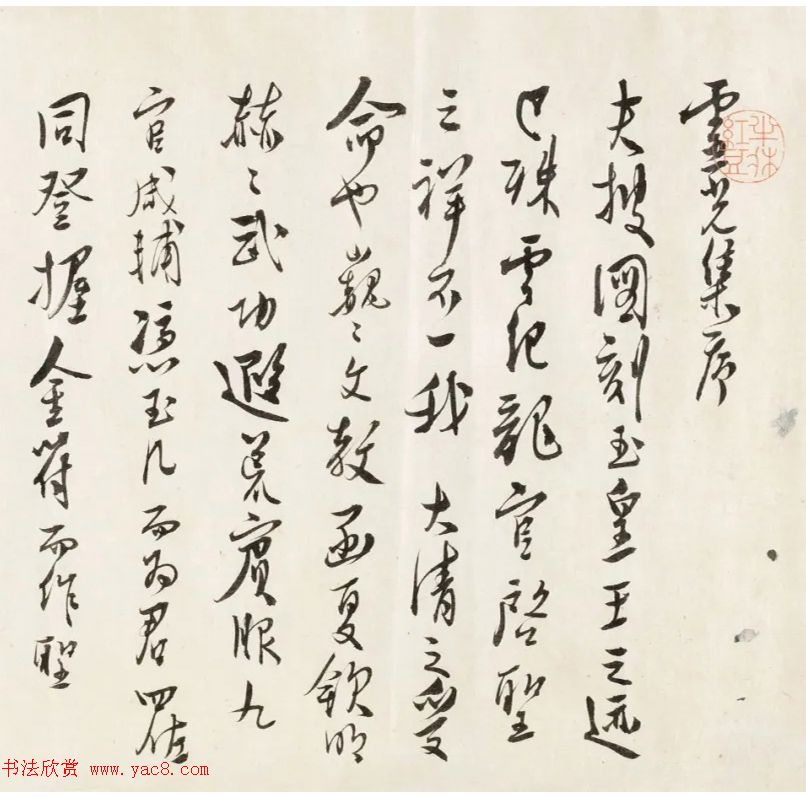 靈光集序
夫搜圖刻玉皇王之迹
已殊雲紀龍官啓聖
之祥不一我 大清之受
命也巍々文教函夏欽明
赫々武功遐荒賓服九
官咸輔憑玉几而為君四佐
同登握金符而作聖
书法欣赏 www.yac8.com